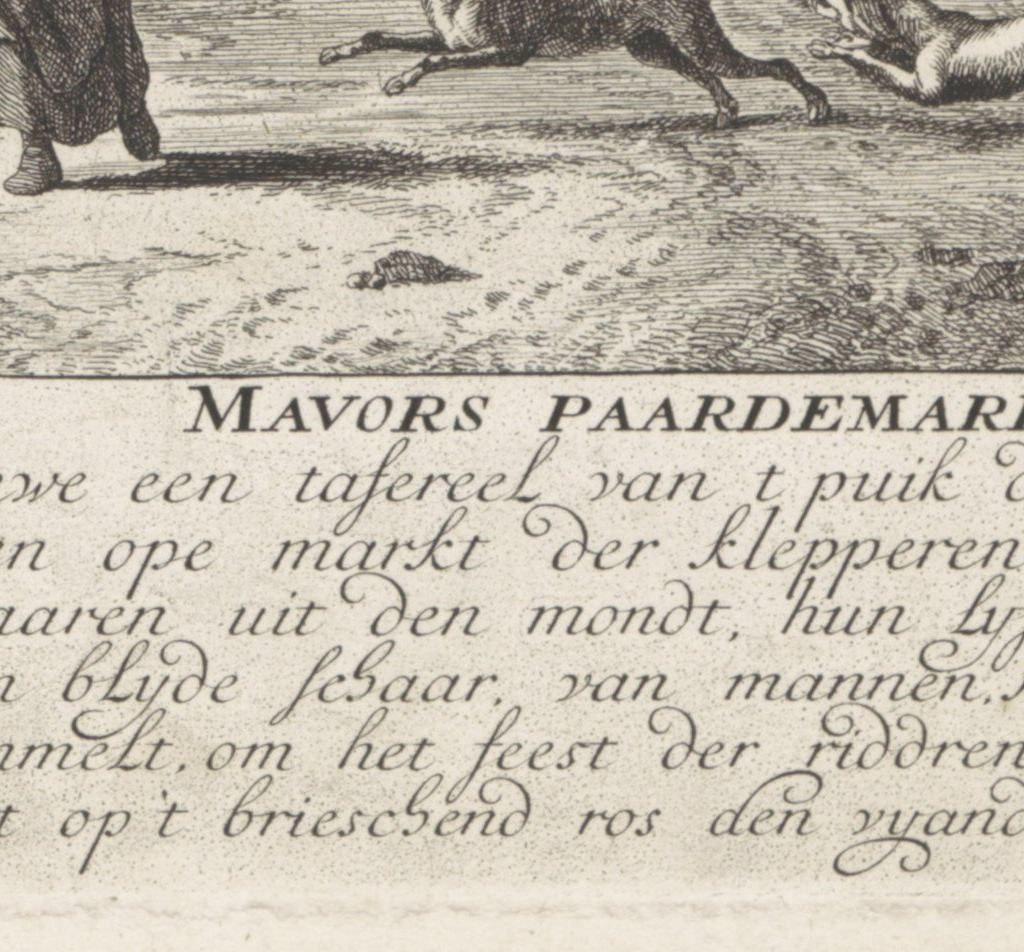 MAVORS PAARDEMAR
we een tafereel van t puik
en ope markt der klepperen
aaren uit den mondt, hun ly
n blyde schaar, van mannen,
mmelt, om het feest der riddren
t op 't brieschend ros den vyand